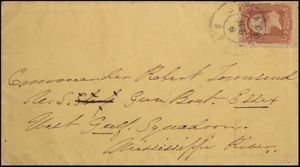 Commander Robert Townsend
U.S. Gun Boat Essex
West Gulf Squadron
Mississippi River